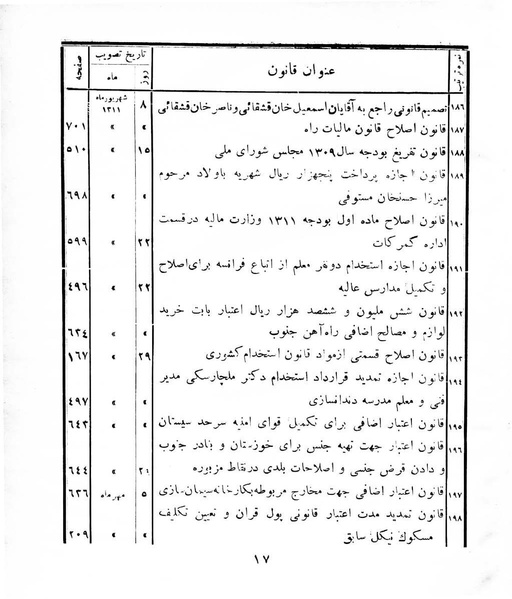 نمره ترتیب عنوان قانون تاریخ تصویب صفحه
روز ماه
۱۸۶ تصمیم قانونی راجع به آقایان اسمعیل خان قشقائی و ناصر خان قشقائی ۸ شهریورماه ۱۳۱۱
۱۸۷ قانون اصلاح قانون مالیات راه » » ۷۰۱
۱۸۸ قانون تفریغ بودجه سال ۱۳۰۹ مجلس شورای ملی ۱۵ » ۵۱۰
۱۸۹ قانون اجازه پرداخت پنجهزار ریال شهریه باولاد مرحوم
میرزا حسنخان مستوفی » » ۶۹۸
۱۹۰ قانون اصلاح ماده اول بودجه ۱۳۱۱ وزارت مالیه درقسمت
اداره گمرکات ۲۲ » ۵۹۹
۱۹۱ قانون اجازه استخدام دونفر معلم از اتباع فرانسه برای اصلاح
و تکمیل مدارس عالیه ۲۲ » ۴۹۶
۱۹۲ قانون شش ملیون و ششصد هزار ریال اعتبار بابت خرید
لوازم و مصالح اضافی راه‌آهن جنوب » » ۶۳۴
۱۹۳ قانون اصلاح قسمتی ازمواد قانون استخدام کشوری ۲۹ » ۱۶۷
۱۹٤ قانون اجازه تمدید قرارداد استخدام دکتر ملچارسکی مدیر
فنی و معلم مدرسه دندانسازی » » ٤۹۷
۱۹۵ قانون اعتبار اضافی برای تکمیل قوای امنیه سرحد سیستان » » ٦٤۳
۱۹۶ قانون اعتبار جهت تهیه جنس برای خوزستان و بنادر جنوب
و دادن قرض جنسی و اصلاحات بلدی درنقاط مزبوره » ٦٤٤
۱۹۷ قانون اعتبار اضافی جهت مخارج مربوطه بکارخانه سیمان‌سازی ۵ مهرماه ٦۳٦
۱۹۸ قانون تمدید مدت اعتبار قانونی پول قران و تعیین تکلیف
مسکوك نیکل سابق » » ۲۰۹
۱۷